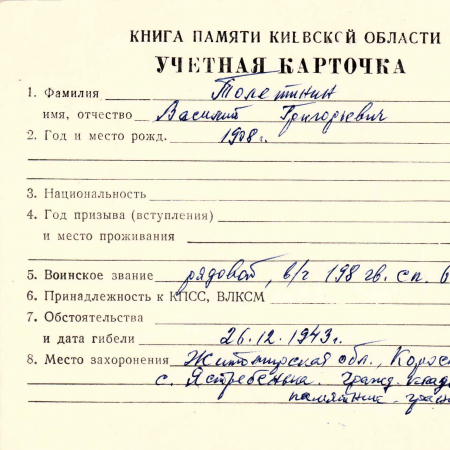 КНИГА ПАМЯТИ КИЕВСКОЙ ОБЛАСТИ
УЧЕТНАЯ КАРТОЧКА
1. Фамилия Толетинин
имя, отчество Василий Григорьевич
2. Год и место рожд. 1908 г.
3. Национальность
4. Год призыва (вступления)
и место проживания
5. Воинское звание рядовой, в/ч 198 гв. сп. 6
6. Принадлежность к КПСС, ВЛКСМ
7. Обстоятельства
и дата гибели 26.12.1943г.
8. Место захоронения Житомирская обл.,
с. Ястребенька. Гражд.
памятник.